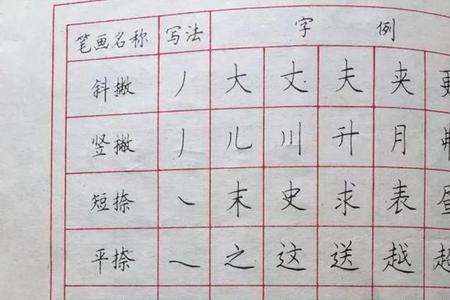 笔画名称 写法 字 例
斜撇 丿 大 丈 夫 夹
竖撇 丿 儿 川 升 月
短捺 ㇏ 末 史 求 表
平捺 ㇏ 之 这 送 越 超